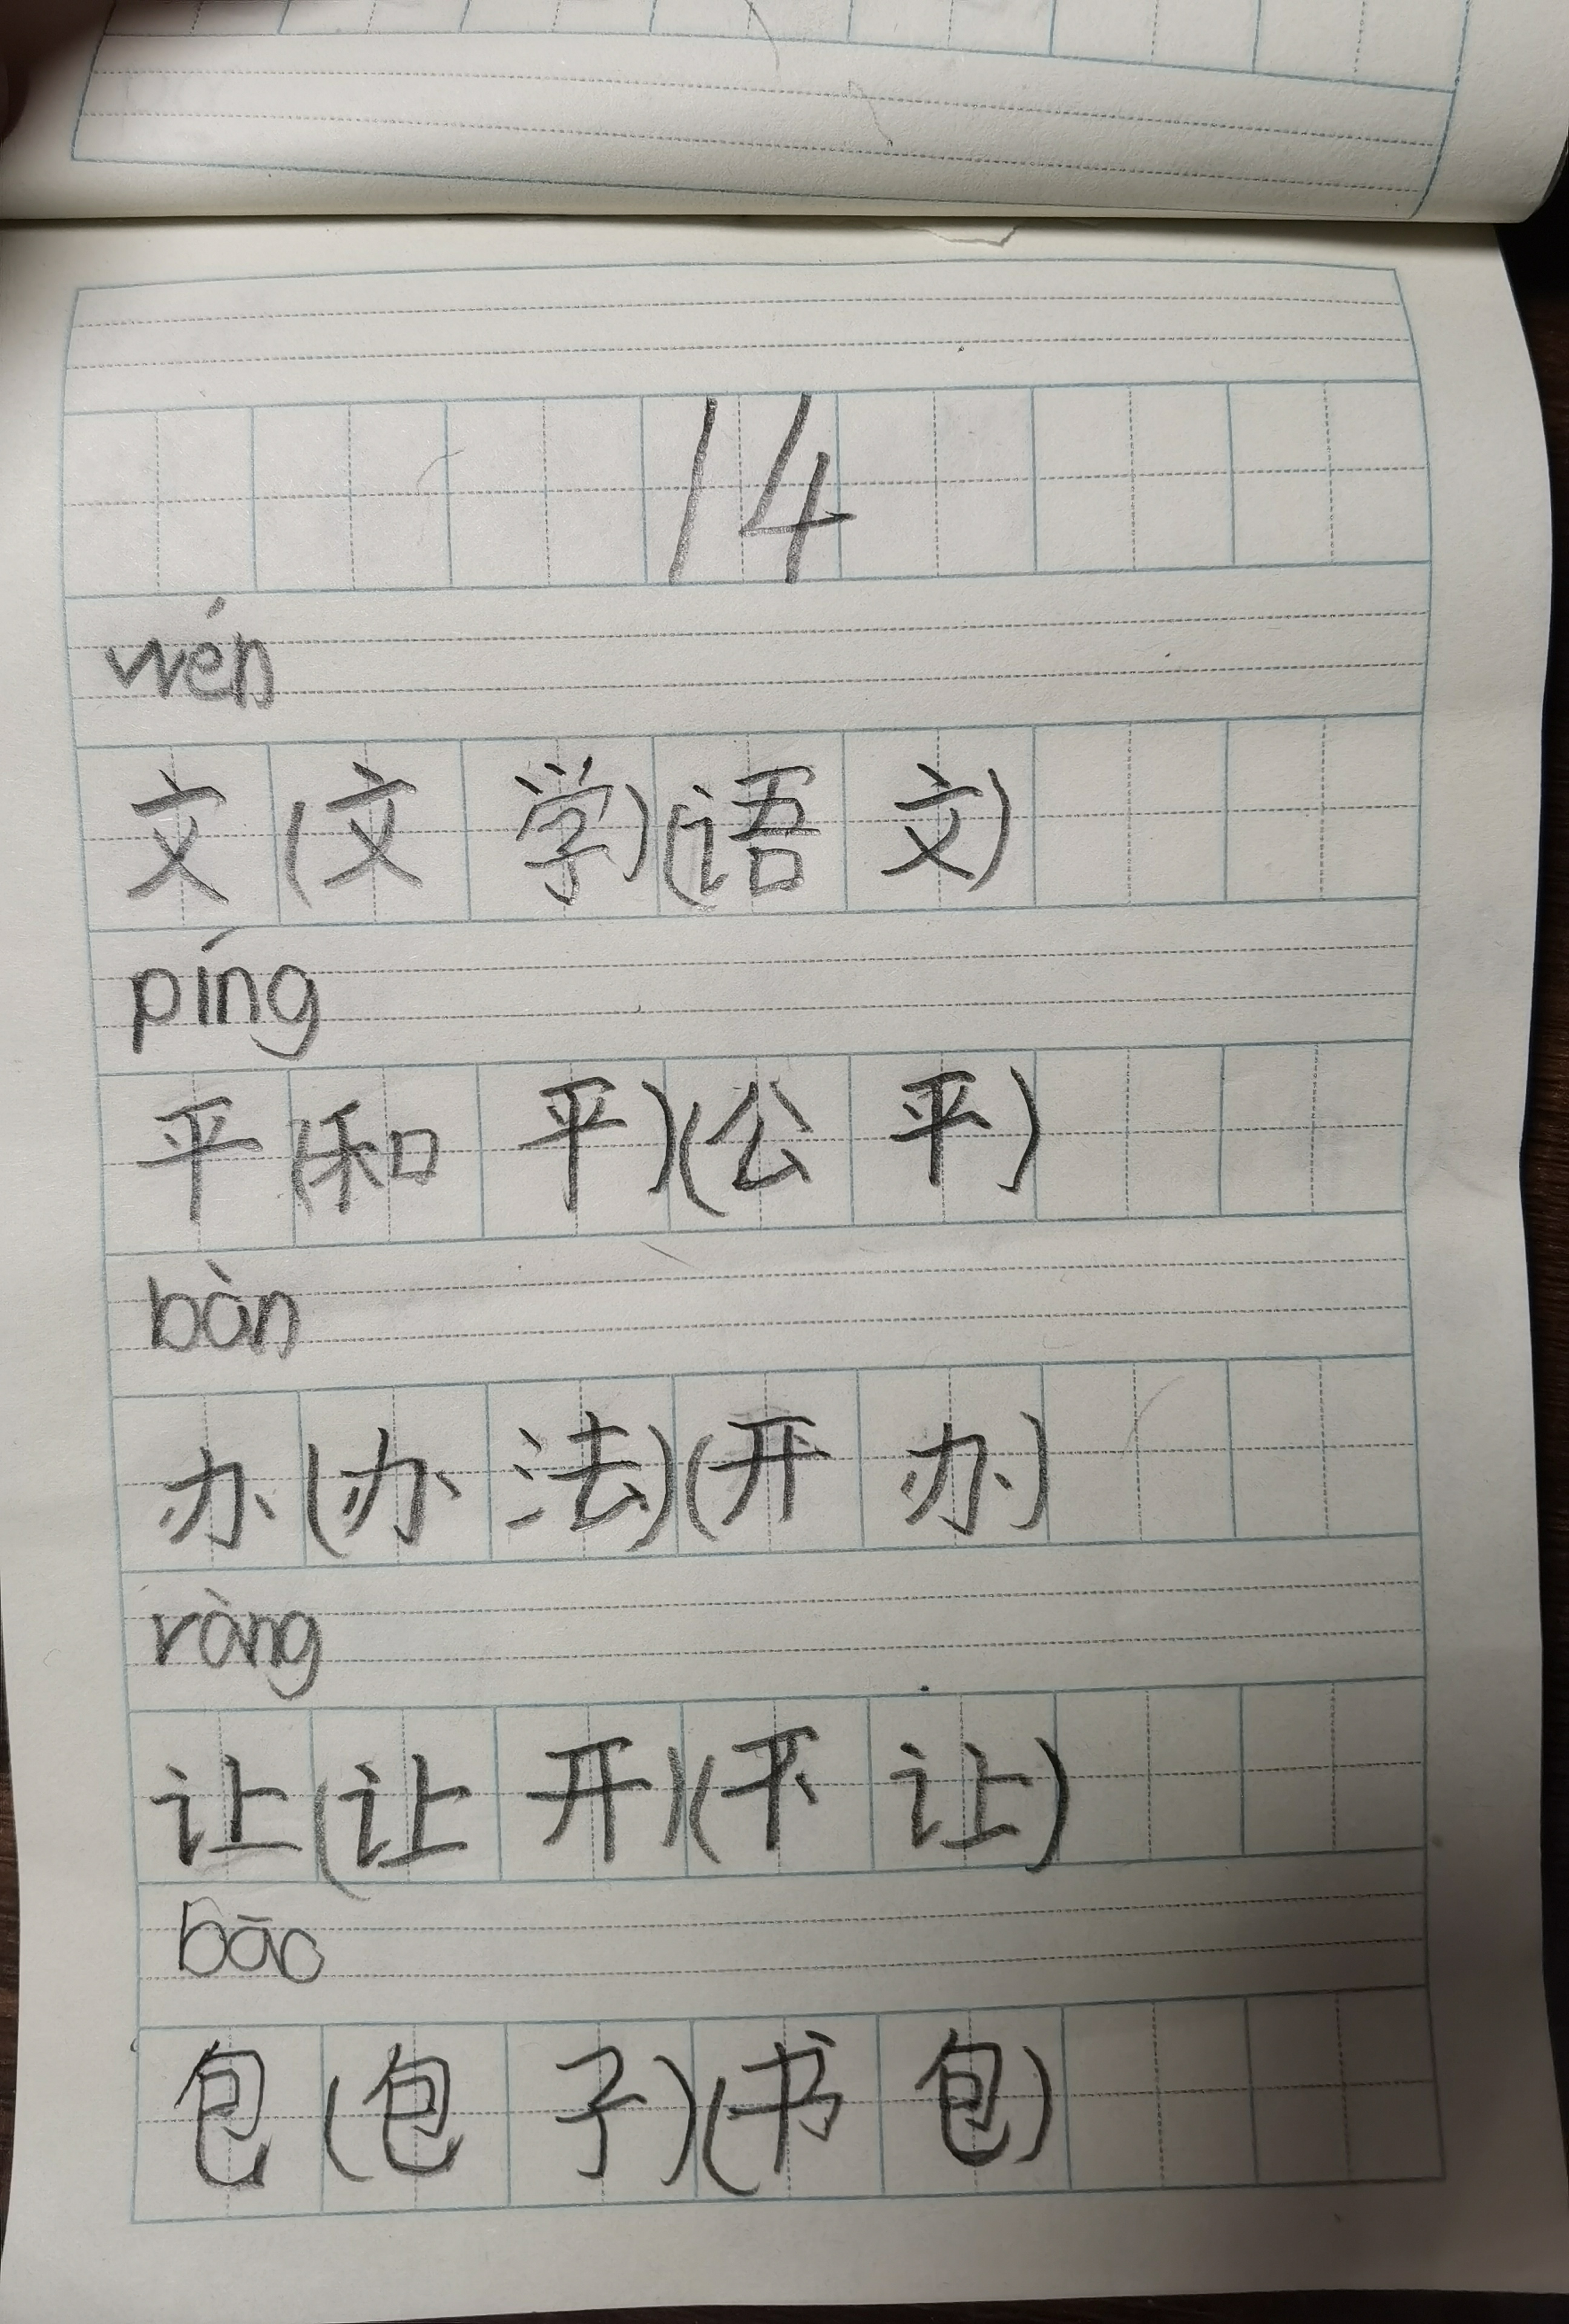 14
wén
文(文学)(语文)
píng
平(和平)(公平)
bàn
办(办法)(开办)
ràng
让(让开)(不让)
bāo
包(包子)(书包)